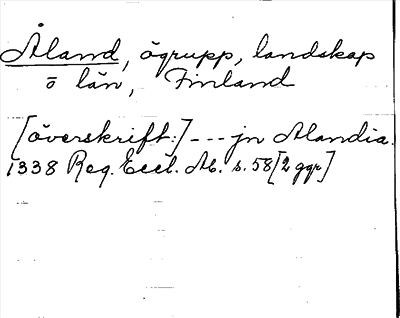 Åland, ögrupp, landskap
o län, Finland
[överskrift:] --- jn Alandia.
1338 Reg. Eccl. Ab. s. 58 [2 ggr]